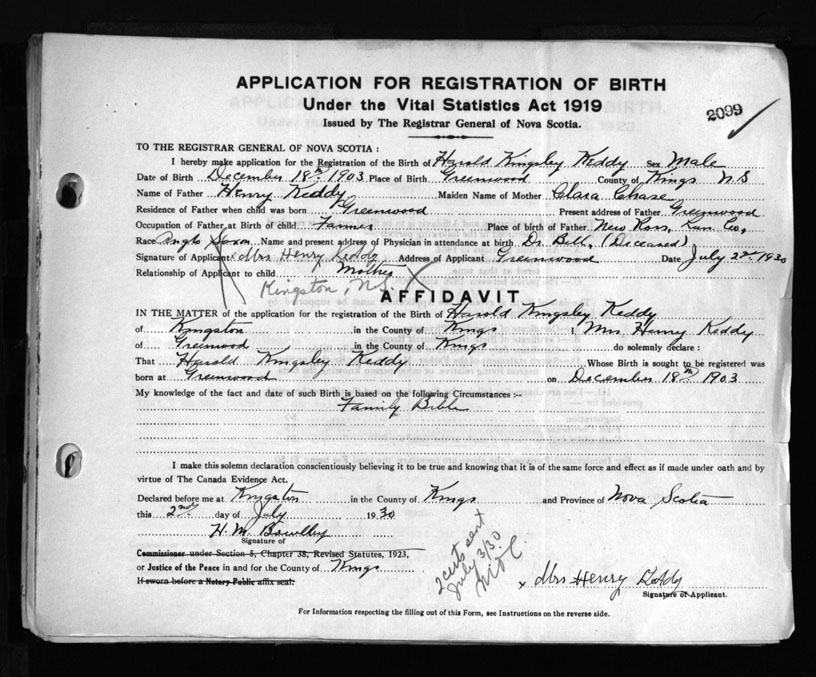 APPLICATION FOR REGISTRATION OF BIRTH
Under the Vital Statistics Act 1919
2099
Issued by The Registrar General of Nova Scotia.
TO THE REGISTRAR GENERAL OF NOVA SCOTIA :
I hereby make application for the Registration of the Birth of Harold Kingsley Keddy Sex Male
Date of Birth December 18th 1903 Place of Birth Greenwood County of Kings N.S
Name of Father Henry Keddy Maiden Name of Mother Clara Chase
Residence of Father when child was born Greenwood Present address of Father Greenwood
Occupation of Father at Birth of child Farmer Place of birth of Father New Ross, Lun. Co.
Race Anglo Saxon Name and present address of Physician in attendance at birth Dr. Bell. (Deceased)
Signature of Applicant Mrs Henry Keddy Address of Applicant Greenwood Date July 2nd 1930
Relationship of Applicant to child Mother
Kingston, N.S.
AFFIDAVIT
IN THE MATTER of the application for the registration of the Birth of Harold Kingsley Keddy
of Kingston in the County of Kings I Mrs Henry Keddy
of Greenwood in the County of Kings do solemnly declare :
That Harold Kingsley Keddy Whose Birth is sought to be registered was
born at Greenwood on December 18th 1903
My knowledge of the fact and date of such Birth is based on the following Circumstances:-
Family Bible
I make this solemn declaration conscientiously believing it to be true and knowing that it is of the same force and effect as if made under oath and by
virtue of The Canada Evidence Act.
Declared before me at Kingston in the County of Kings and Province of Nova Scotia
this 2nd day of July 1930
H. M.
Signature of
Commissioner under Section 5, Chapter 38, Revised Statutes, 1923,
or Justice of the Peace in and for the County of Kings
If sworn before a Notary Public affix seal.
2 certs sent
July 3/30
x Mrs Henry Keddy
Signature of Applicant.
For Information respecting the filling out of this Form, see Instructions on the reverse side.